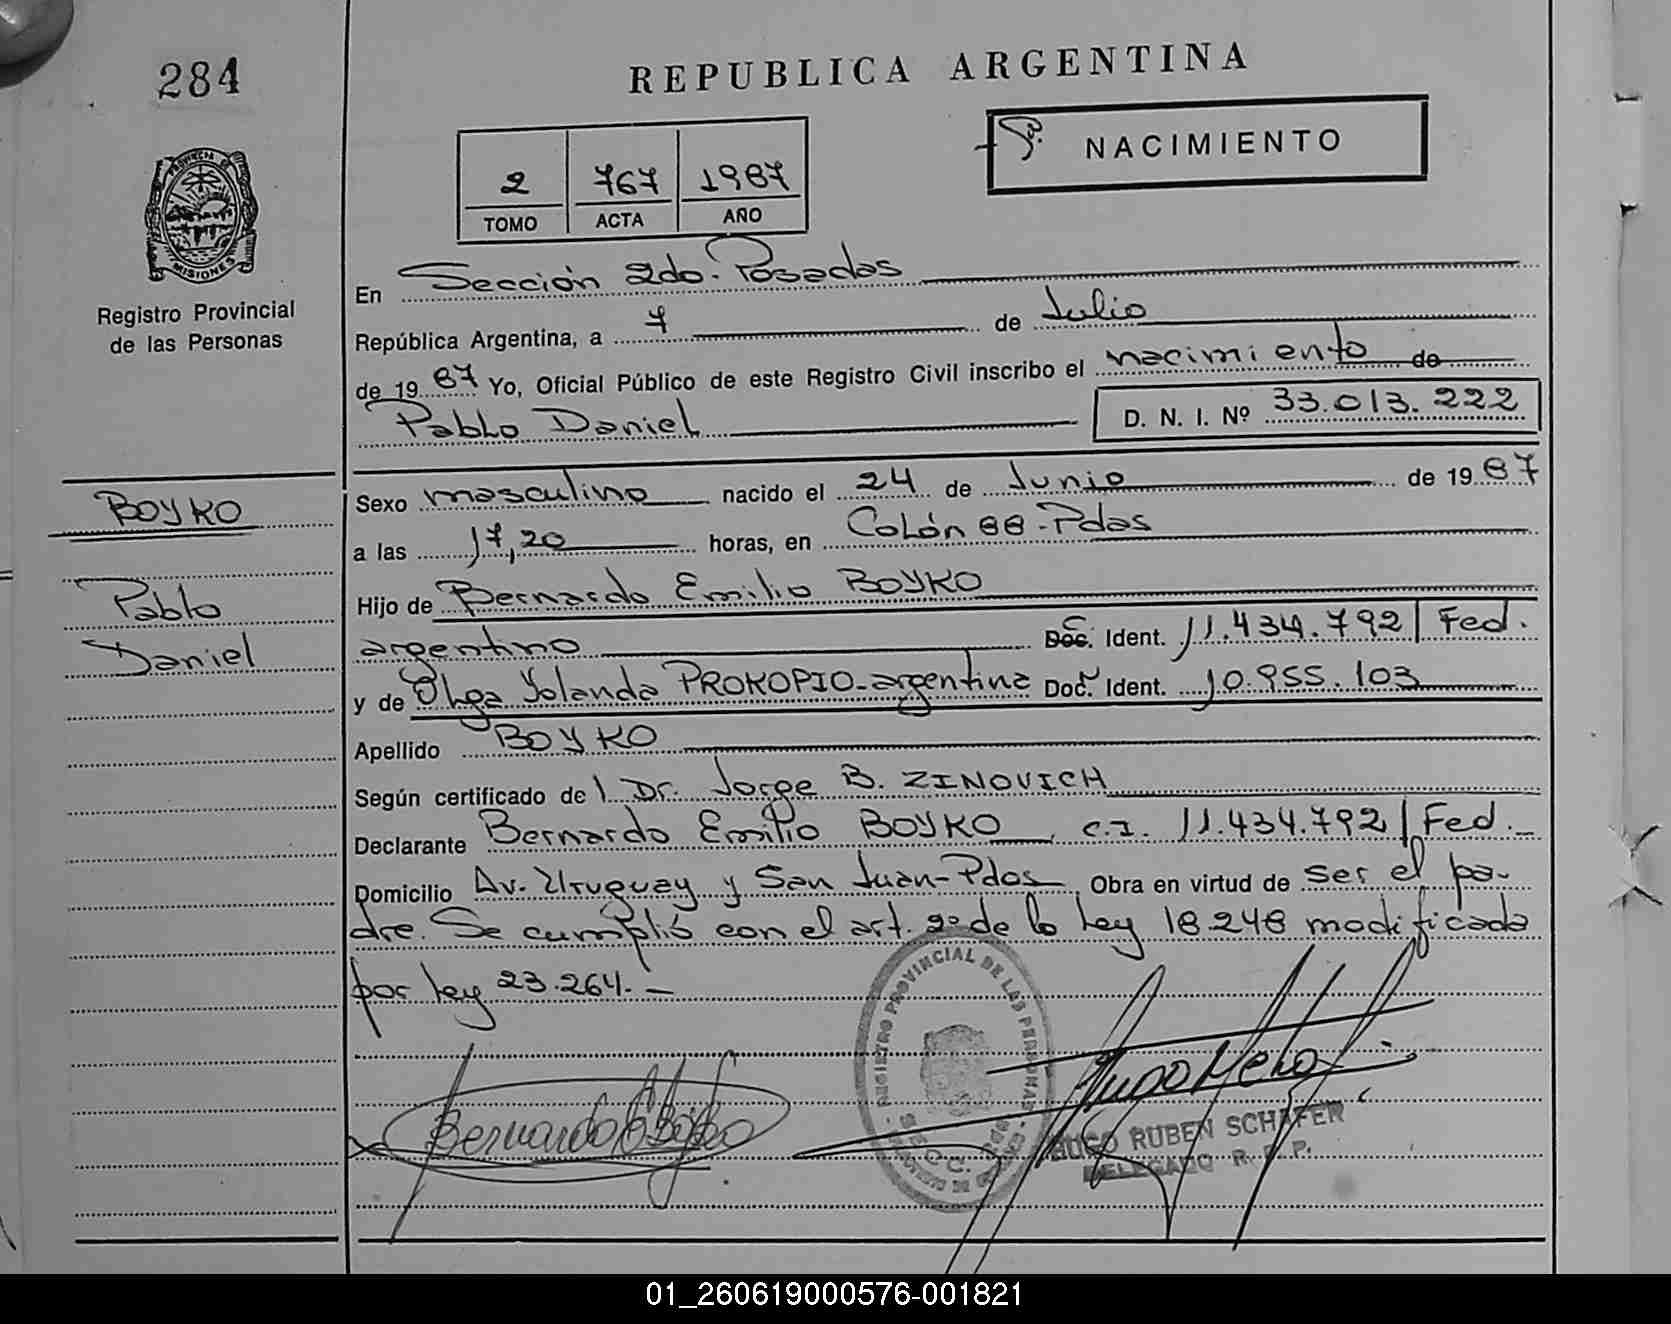 284
REPUBLICA ARGENTINA
NACIMIENTO
2 767 1987
TOMO ACTA AÑO
PROVINCIA DE
MISIONES
Registro Provincial
de las Personas
En Sección 2do. Posadas
República Argentina, a 7 de Julio
de 19 87 Yo, Oficial Público de este Registro Civil inscribo el nacimiento de
Pablo Daniel D. N. I. Nº 33.013.222
BOYKO
Pablo
Daniel
Sexo masculino nacido el 24 de Junio de 19 87
a las 17,20 horas, en Colón 88-Pdas
Hijo de Bernardo Emilio BOYKO
argentino Doc. C. Ident. 11.434.792/Fed.
y de Olga Yolanda PROKOPIO-argentina Doc. Ident. 10.955.103
Apellido BOYKO
Según certificado de l Dr. Jorge B. ZINOVICH
Declarante Bernardo Emilio BOYKO, c.I. 11.434.792/Fed.
Domicilio Av. Uruguay y San Juan-Pdas Obra en virtud de ser el pa-
dre. Se cumplió con el art. 2º de la Ley 18.248 modificada
por ley 23.264.-
REGISTRO PROVINCIAL DE LAS PERSONAS
HUGO RUBEN SCHAFER
DELEGADO R. P. P.
01_260619000576-001821